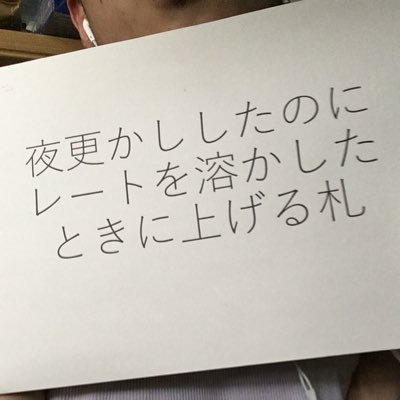 夜更かししたのに
レートを溶かした
ときに上げる札